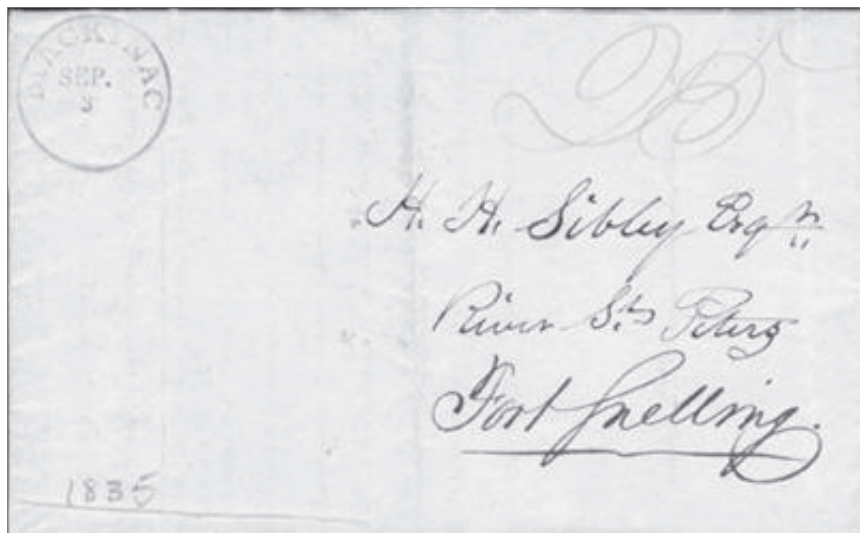 MACKINAC
SEP.
3
25
H. H. Sibley Esqr.
River St. Peters
Fort Snelling.
1835